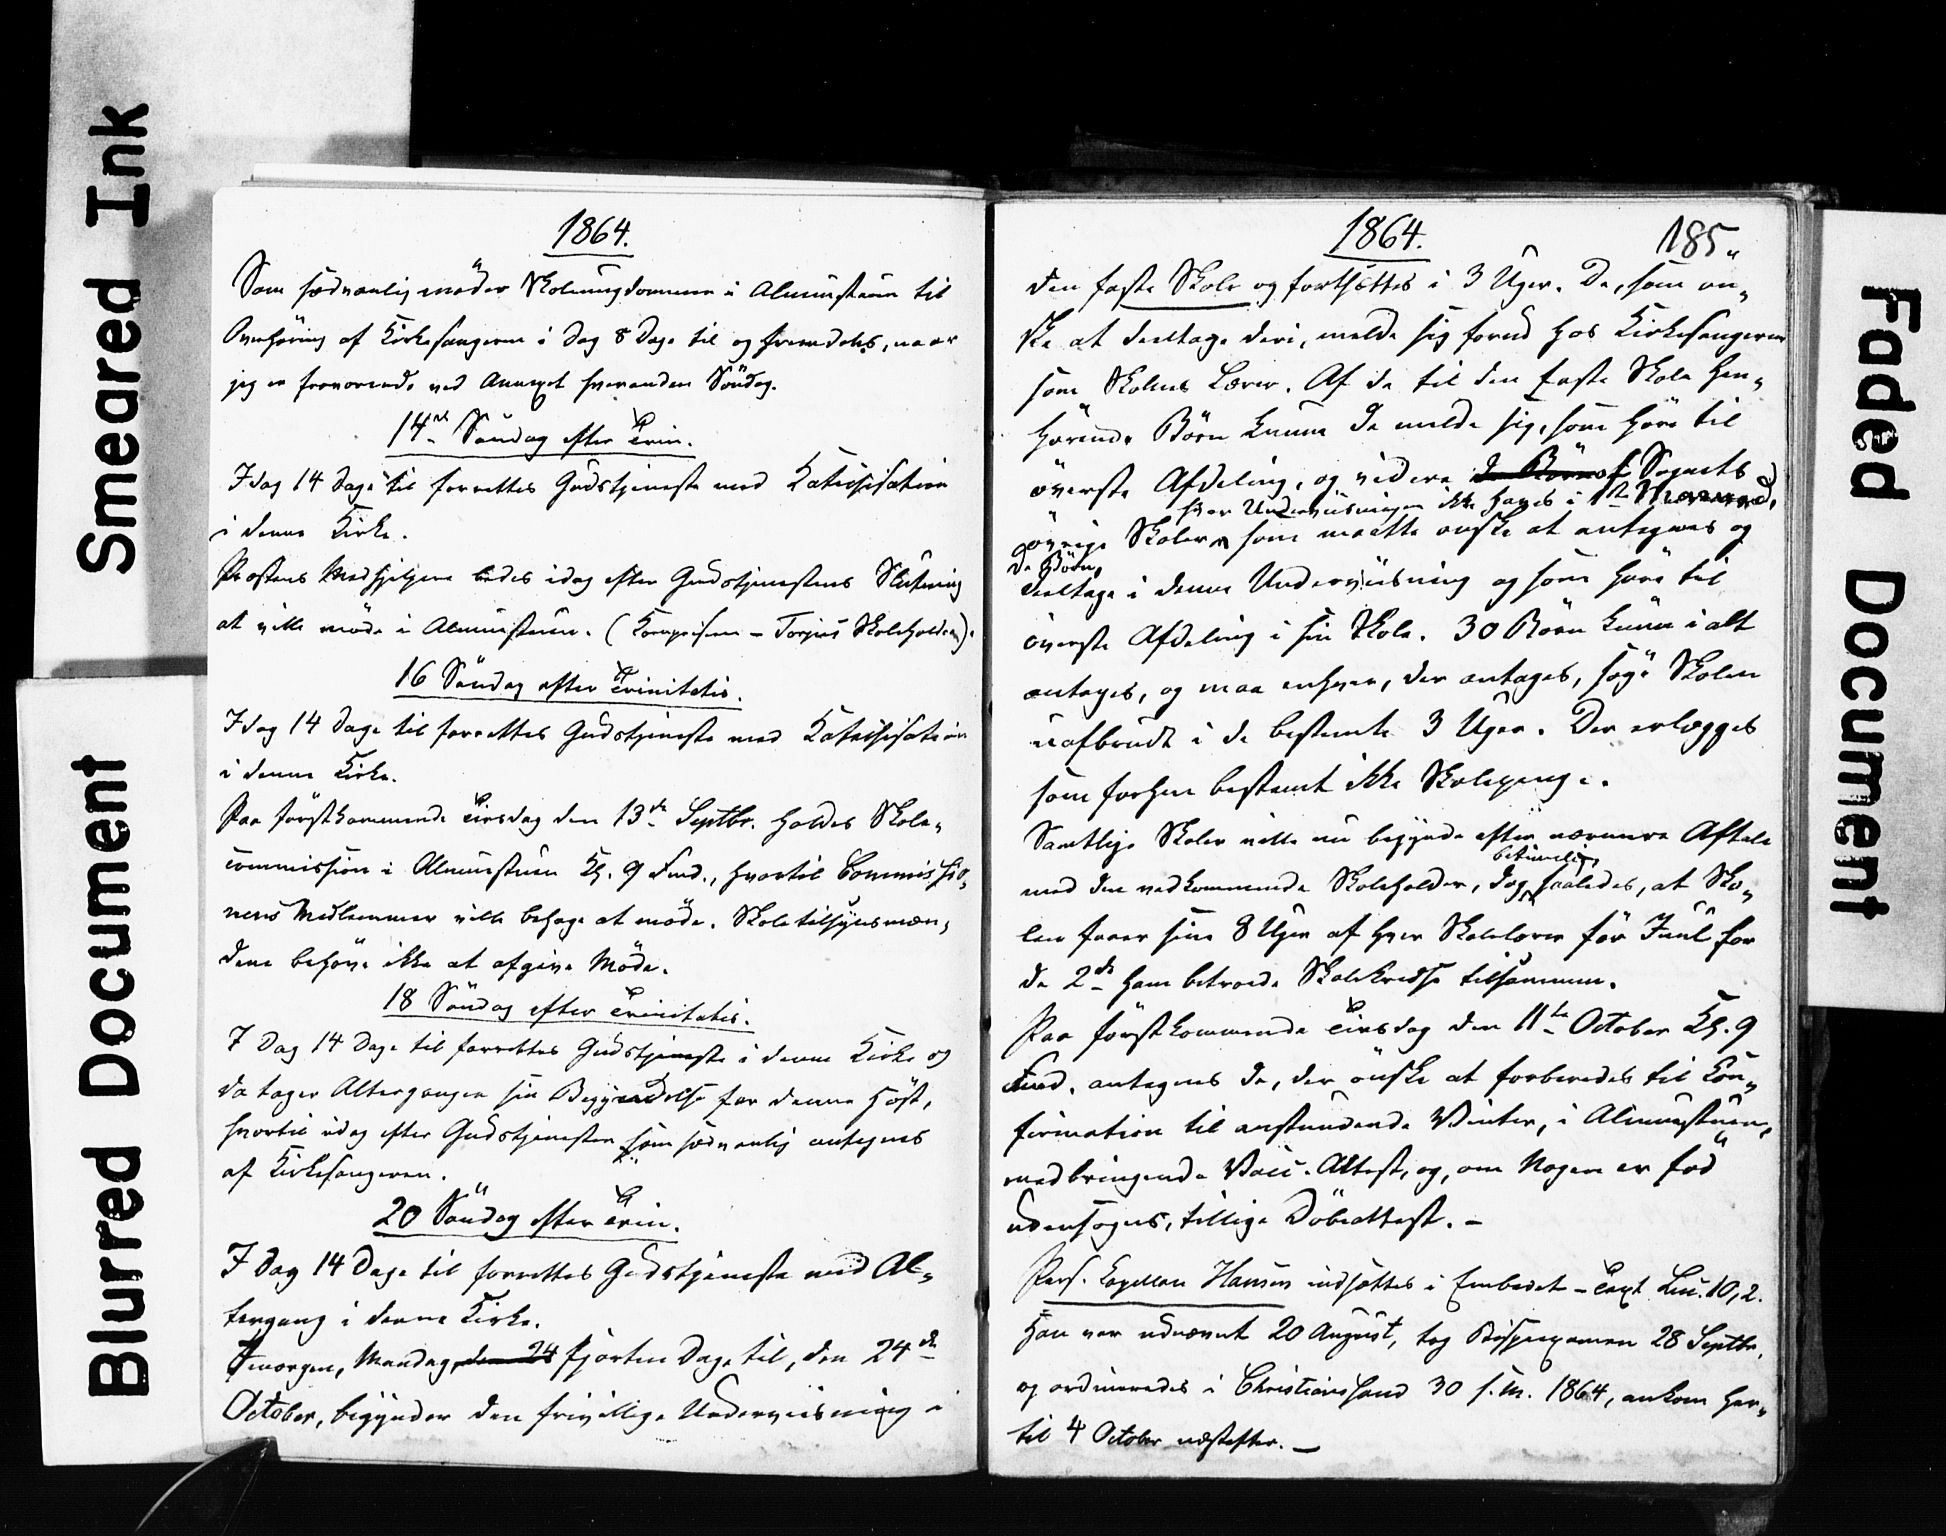 Smeared Ink
Blurred Document
Faded Document
1864.
Som sædvanlig møder Skoleungdommen i Almuestuen til
Overhøring af Kirkesangeren i Dag 8 Dage til og fremdeles, naar
jeg er fraværende ved Annexet hveranden Søndag.
14de Søndag efter Trin.
I dag 14 Dage til forrettes Gudstjeneste med Katechisation
i denne Kirke.
Præstens Medhjelpere bedes idag efter Gudstjenestens Slutning
at ville møde i Almuestuen. (           – Torjus Skoleholder).
16 Søndag efter Trinitatis.
I dag 14 Dage til forrettes Gudstjeneste med Katechisation
i denne Kirke.
Paa førstkommende Tirsdag den 13de Septbr. holdes Skole-
commission i Almuestuen Kl. 9 Fmd., hvortil Commissio-
nens Medlemmer ville behage at møde. Skoletilsynsmæn-
dene behøve ikke at afgive Møde.
18 Søndag efter Trinitatis.
I Dag 14 Dage til forrettes Gudstjeneste i denne Kirke og
da tager Altergangen sin Begyndelse for denne Høst,
hvortil idag efter Gudstjenesten som sædvanlig antegnes
af Kirkesangeren.
20 Søndag efter Trin.
I Dag 14 Dage til forrettes Gudstjeneste med Al-
tergang i denne Kirke.
Imorgen, Mandag, den 24 fjorten Dage til, den 24de
October, begynder den frivillige Underviisning i
1864.
185.
den faste Skole og fortsættes i 3 Uger. De, som øn-
ske at deeltage deri, melde sig forud hos Kirkesangeren
som Skolens Lærer. Af de til den faste Skole hen-
hørende Børn kunne de melde sig, som høre til
øverste Afdeling, og videre de Børn af Sognets
hvor Underviisningen ikke haves i 1ste
øvrige Skoler, som maatte ønske at antegnes og
de Børn,
deeltage i denne Underviisning og som høre til
øverste Afdeling i sin Skole. 30 Børn kunne i alt
antages, og maa enhver, der antages, søge Skolen
uafbrudt i de bestemte 3 Uger. Der erlægges
som forhen bestemt ikke Skolepenge.
Samtlige Skoler ville nu begynde efter nærmere Aftale
betimelig,
med den vedkommende Skoleholder, dog saaledes, at Sko-
len faaer sine 8 Uger af hver Skolelærer før Juul for
de 2de ham betroede Skolekredse tilsammen.
Paa førstkommende Tirsdag den 11te October Kl. 9
Fmd. antegnes de, der ønske at forberedes til Con-
firmation til anstundende Vinter, i Almuestuen,
medbringende Vacc. Attest, og, om Nogen er fød
udensogns, tillige Døbeattest. –
Pers. Capellan Hansen indsættes i Embedet – Text Luc. 10,2.
Han var udnævnt 20 August, tog Bispeexamen 28 Septbr.
og ordineredes i Christianssand 30 s. M. 1864, ankom her-
til 4 October næstefter. –